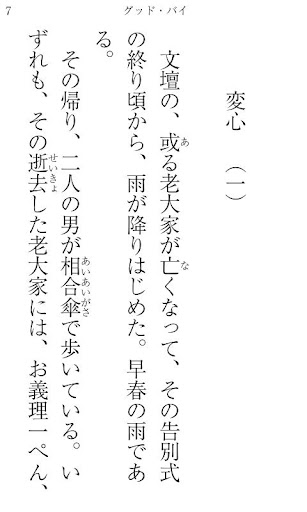 7
グッド・バイ
変心 （一）
文壇の、或る老大家が亡くなって、その告別式
の終り頃から、雨が降りはじめた。早春の雨であ
る。
その帰り、二人の男が相合傘で歩いている。い
ずれも、その逝去した老大家には、お義理一ぺん、